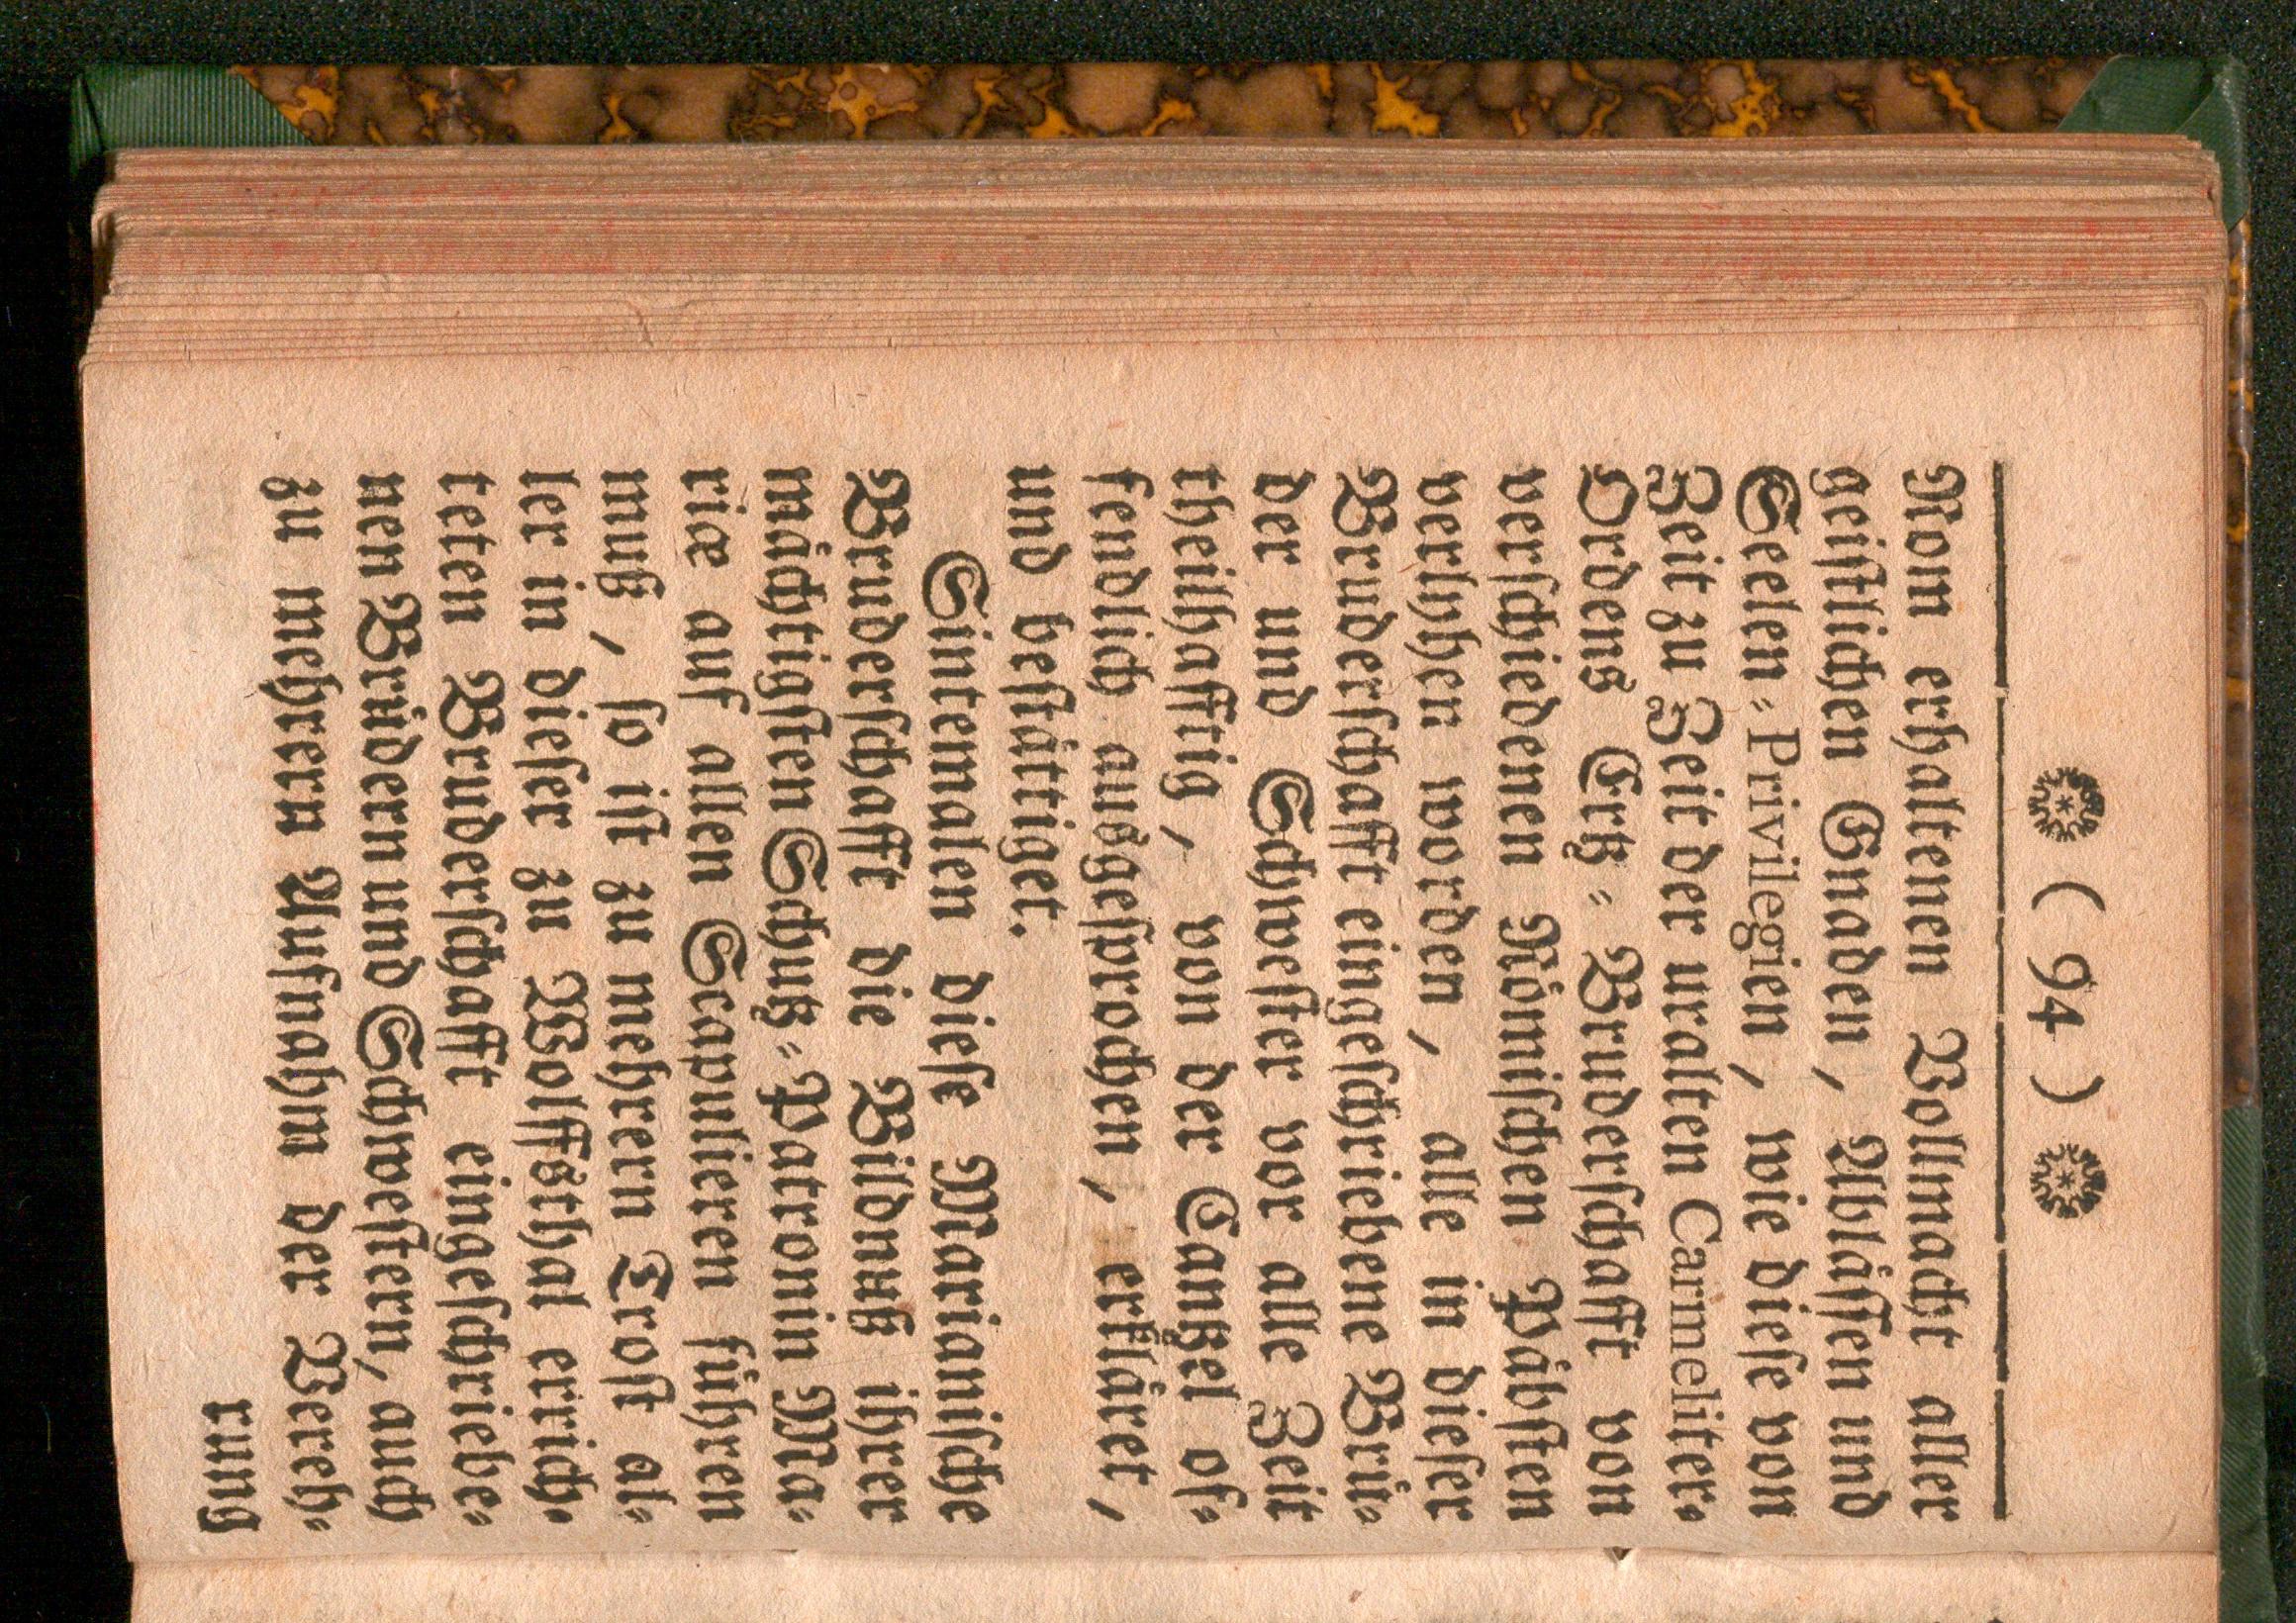 ( 94 )
Rom erhaltenen Vollmacht aller
geistlichen Gnaden, Abläſſen und
Seelen⸗Privilegien, wie dieſe von
Zeit zu Zeit der uralten Carmeliter⸗
Ordens Ertz⸗Bruderſchafft von
verſchiedenen Römiſchen Päbſten
verlyhen worden, alle in dieſer
Bruderſchafft eingeſchriebene Brü⸗
der und Schweſter vor alle Zeit
theilhafftig, von der Cantzel of⸗
fendlich ausgeſprochen, erkläret,
und beſtättiget.
Sintemalen dieſe Marianiſche
Bruderſchafft die Bildnuß ihrer
mächtigſten Schutz⸗Patronin Ma⸗
riæ auf allen Scapulieren führen
muß, ſo iſt zu mehrern Troſt al⸗
ler in dieſer zu Wolffsthal errich⸗
teten Bruderſchafft eingeſchriebe⸗
nen Brüdern und Schweſtern, auch
zu mehrern Aufnahm der Vereh⸗
rung